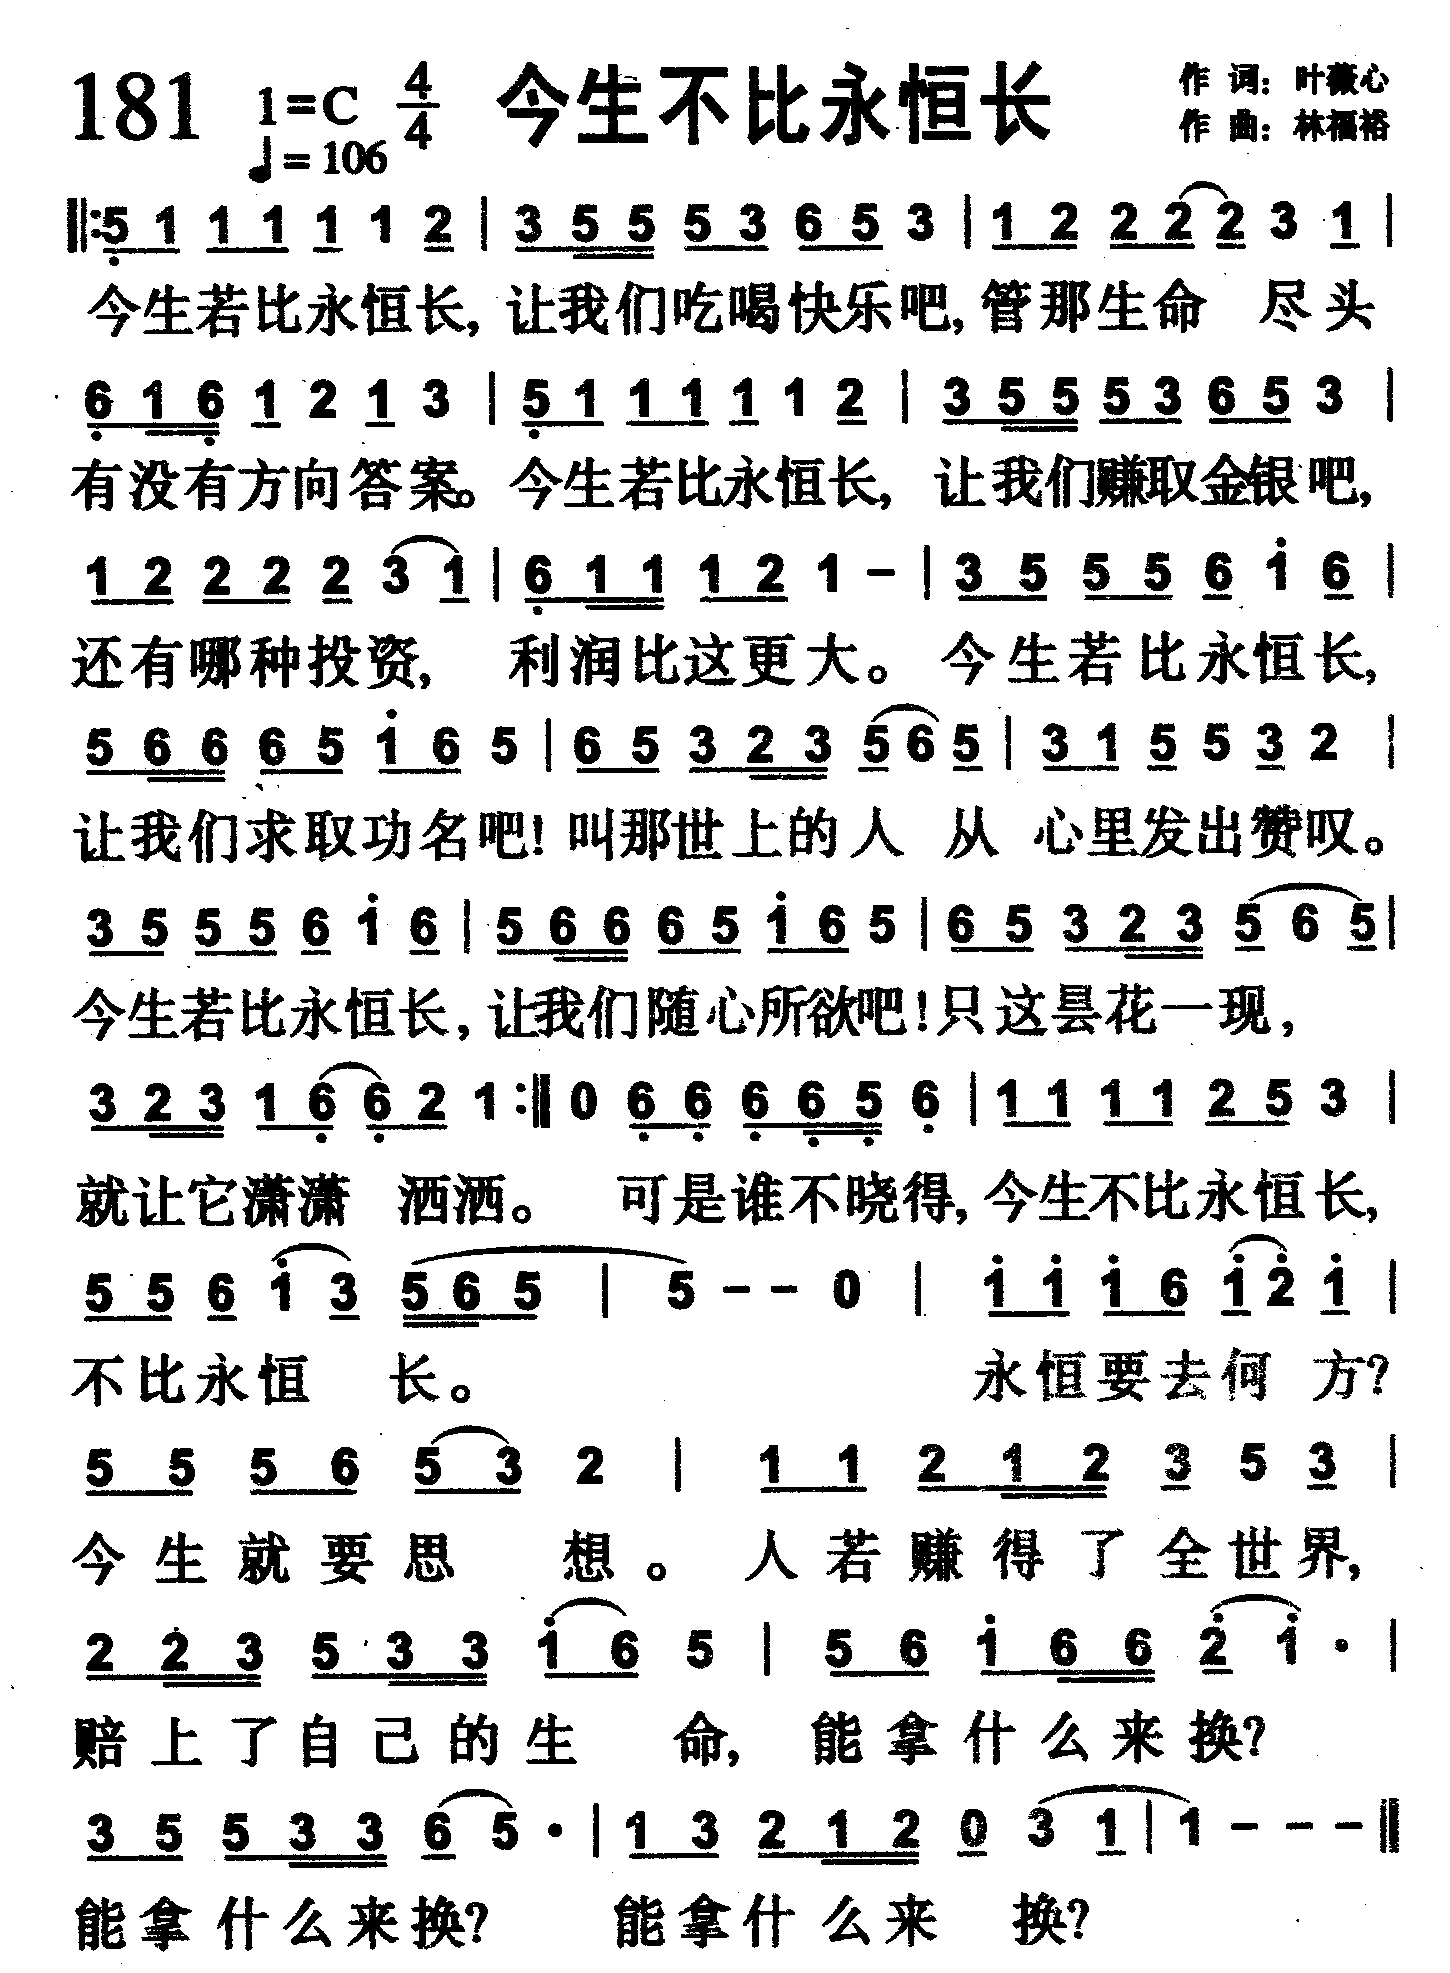 181 1=C 4/4 今生不比永恒长 作 词：叶薇心
♩=106 作 曲：林福裕
‖:5 1 1 1 1 1 2 | 3 5 5 5 3 6 5 3 | 1 2 2 2 2 3 1 |
今生若比永恒长，让我们吃喝快乐吧，管那生命 尽头
6 1 6 1 2 1 3 | 5 1 1 1 1 1 2 | 3 5 5 5 3 6 5 3 |
有没有方向答案。今生若比永恒长，让我们赚取金银吧，
1 2 2 2 2 3 1 | 6 1 1 1 2 1 – | 3 5 5 5 6 1 6 |
还有哪种投资，利润比这更大。今生若比永恒长，
5 6 6 6 5 1 6 5 | 6 5 3 2 3 5 6 5 | 3 1 5 5 3 2 |
让我们求取功名吧！叫那世上的人 从 心里发出赞叹。
3 5 5 5 6 1 6 | 5 6 6 6 5 1 6 5 | 6 5 3 2 3 5 6 5 |
今生若比永恒长，让我们随心所欲吧！只这昙花一现，
3 2 3 1 6 6 2 1 :‖ 0 6 6 6 6 5 6 | 1 1 1 1 2 5 3 |
就让它潇潇 洒洒。可是谁不晓得，今生不比永恒长，
5 5 6 1 3 5 6 5 | 5 – – 0 | 1 1 1 6 1 2 1 |
不比永恒 长。 永恒要去何 方？
5 5 5 6 5 3 2 | 1 1 2 1 2 3 5 3 |
今生就要思 想。人若赚得了全世界，
2 2 3 5 3 3 1 6 5 | 5 6 1 6 6 2 1 · |
赔上了自己的生 命，能拿什么来换？
3 5 5 3 3 6 5 · | 1 3 2 1 2 0 3 1 | 1 – – – ‖
能拿什么来换？ 能拿什么来 换？